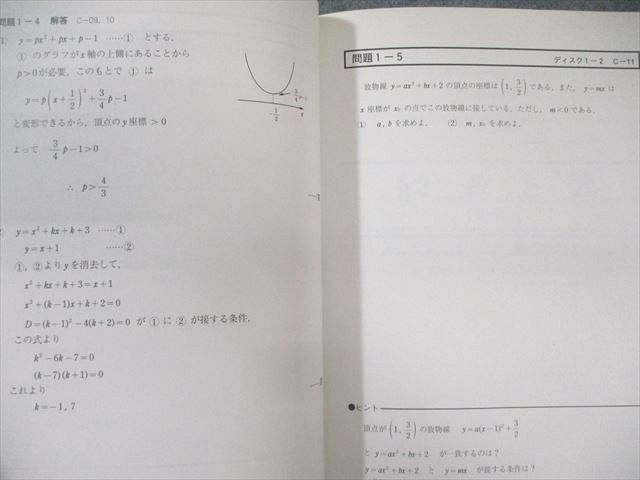 問題1－4 解答 C－09, 10
1) y=px²+px+p－1 ……① とする.
① のグラフが x 軸の上側にあることから
p>0が必要. このもとで ① は
y=p(x+1/2)²+3/4p－1
と変形できるから, 頂点のy座標>0
よって 3/4p－1>0
∴ p>4/3
3/4p－1
－1/2
x
y=x²+kx+k+3 ……①
y=x+1 ……②
①, ②よりyを消去して,
x²+kx+k+3=x+1
x²+(k－1)x+k+2=0
D=(k－1)²－4(k+2)=0 が ① に ② が接する条件.
この式より
k²－6k－7=0
(k－7)(k+1)=0
これより
k=－1, 7
問題1－5 ディスク1－2 C－11
放物線 y=ax²+bx+2 の頂点の座標は (1, 3/2) である. また, y=mx は
x 座標が x₀ の点でこの放物線に接している. ただし, m<0 である.
(1) a, b を求めよ. (2) m, x₀ を求めよ.
●ヒント
頂点が (1, 3/2) の放物線 y=a(x－1)²+3/2
と y=ax²+bx+2 が一致するのは？
y=ax²+bx+2 と y=mx が接する条件は？